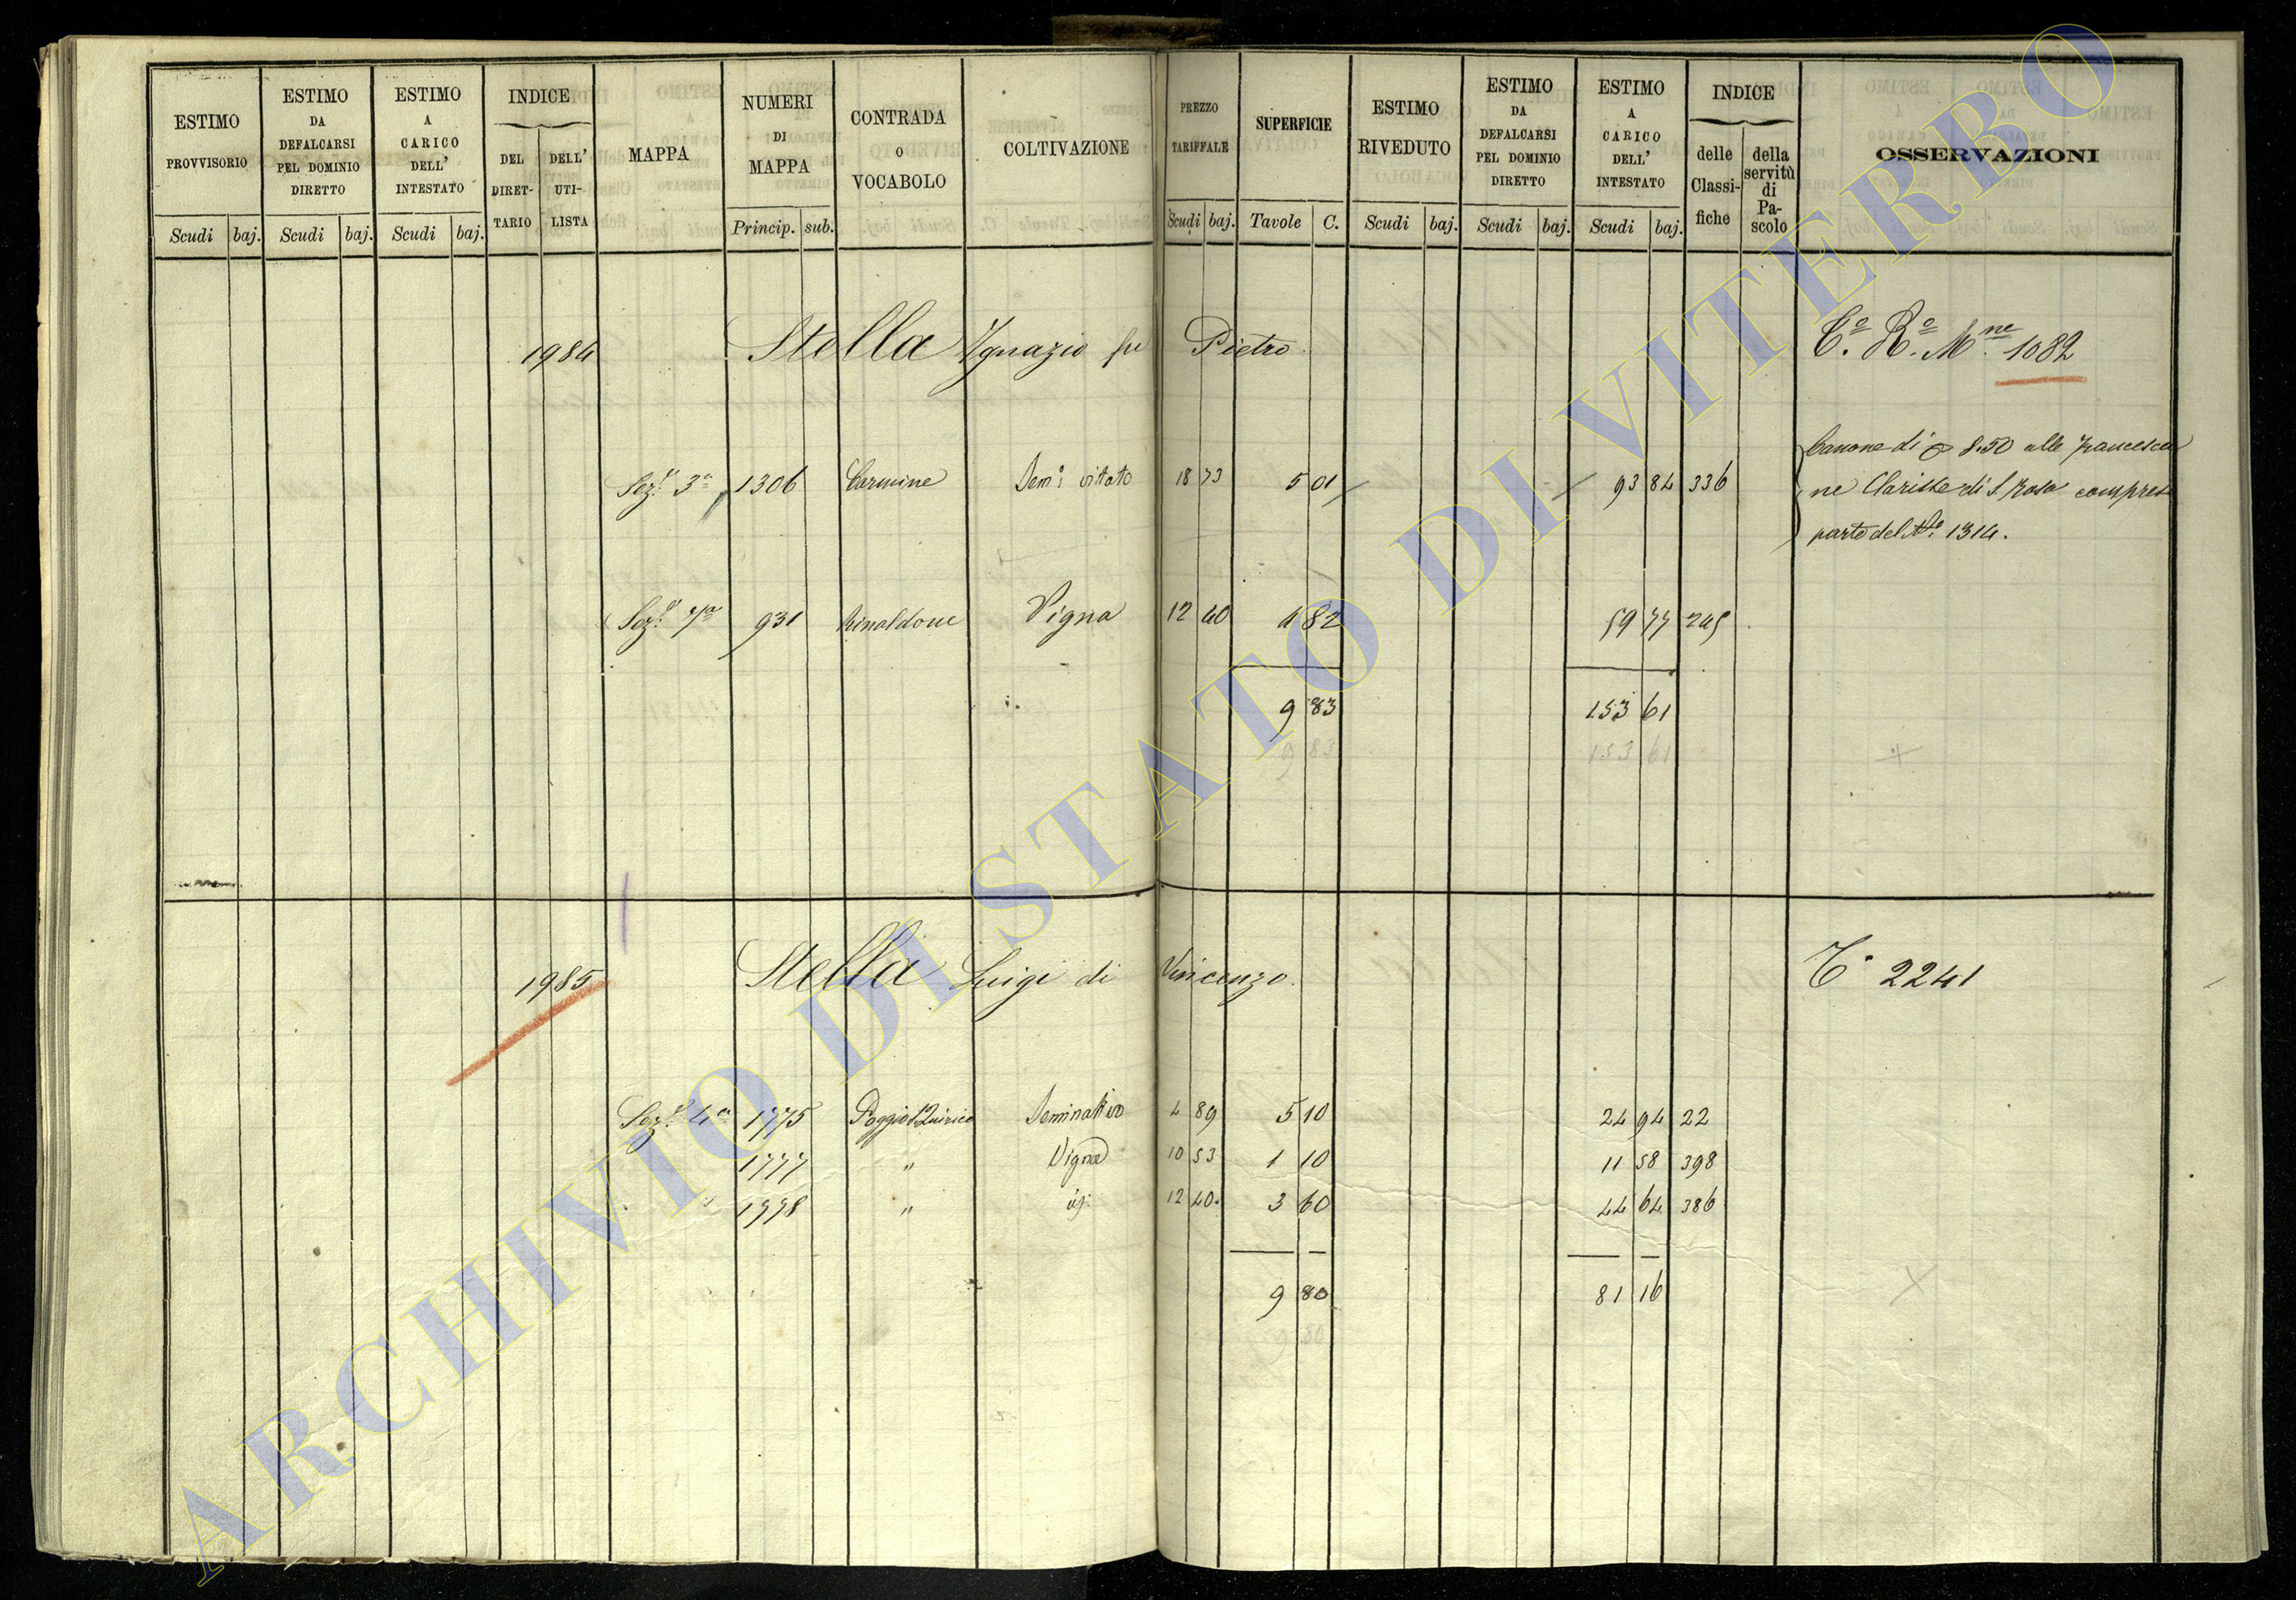 ESTIMO PROVVISORIO
Scudi baj.
ESTIMO DA DEFALCARSI PEL DOMINIO DIRETTO
Scudi baj.
ESTIMO A CARICO DELL' INTESTATO
Scudi baj.
INDICE
DEL DIRET-TARIO
DELL' UTI-LISTA
MAPPA
NUMERI DI MAPPA
Princip. sub.
CONTRADA O VOCABOLO
COLTIVAZIONE
PREZZO TARIFFALE
Scudi baj.
SUPERFICIE
Tavole C.
ESTIMO RIVEDUTO
Scudi baj.
ESTIMO DA DEFALCARSI PEL DOMINIO DIRETTO
Scudi baj.
ESTIMO A CARICO DELL' INTESTATO
Scudi baj.
INDICE
delle Classi-fiche
della servitù di Pa-scolo
OSSERVAZIONI
1984 Stella Ignazio fu Pietro Cº. Rº. Mne. 1082
Sez.e 3a 1306 Carmine Sem.o vitato 18 73 5 01 93 84 336
Canone di 8.50 alle Francesca
ne Clarisse di S. Rosa compresa
parte del No. 1314.
Sez.e 7a 931 Rinaldone Vigna 12 40 4 82 59 77 245
9 83 153 61
9 83 153 61
1985 Stella Luigi di Vincenzo Cº 2241
Sez.e 4a 1775 Poggio Quirico Seminativo 4 89 5 10 24 94 22
1777 " Vigna 10 53 1 10 11 58 398
1778 " id. 12 40. 3 60 44 64 386
9 80 81 16
9 80
ARCHIVIO DI STATO DI VITERBO